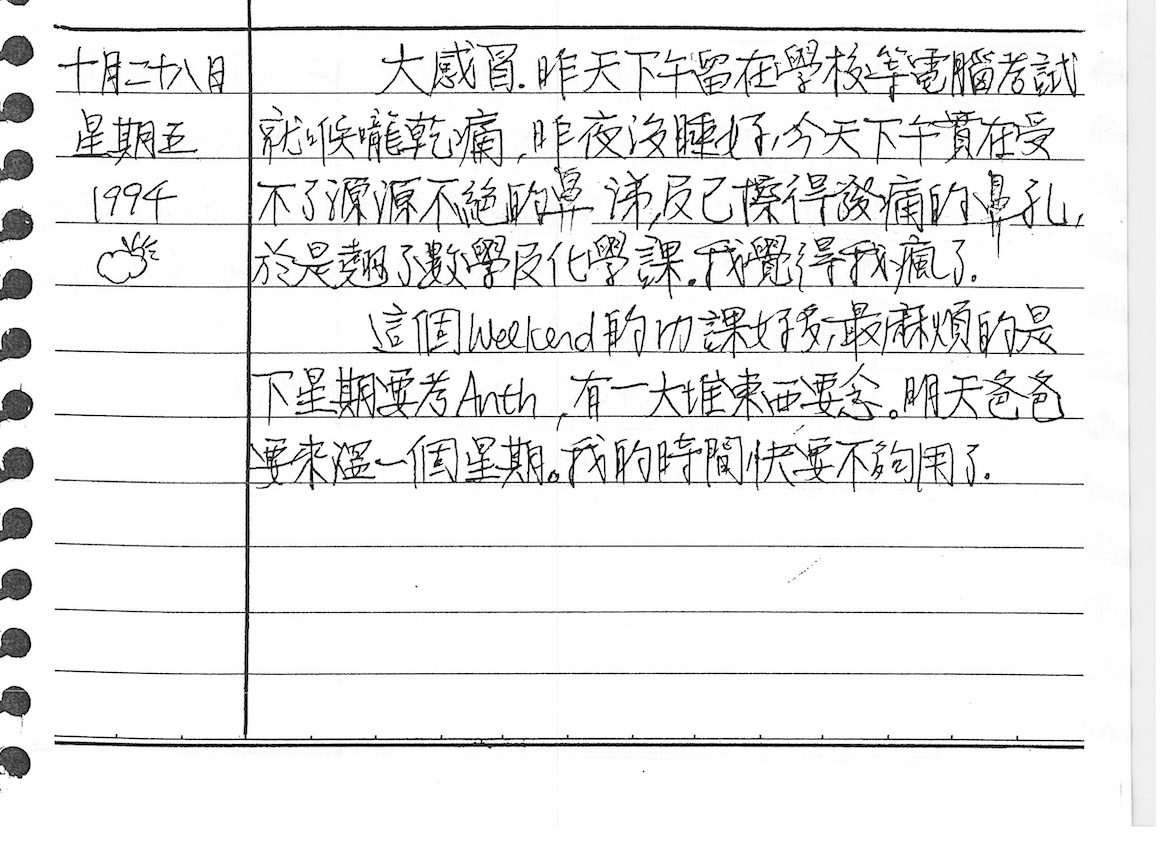 十月二十八日
星期五
1994
大感冒.昨天下午留在學校等電腦考試
就喉嚨乾痛,昨夜沒睡好,今天下午實在受
不了源源不絕的鼻涕,及已擦得發痛的鼻孔,
於是翹了數學及化學課。我覺得我瘋了.
這個Weekend的功課好多,最麻煩的是
下星期要考Anth,有一大堆東西要念。明天爸爸
要來溫一個星期。我的時間快要不夠用了.